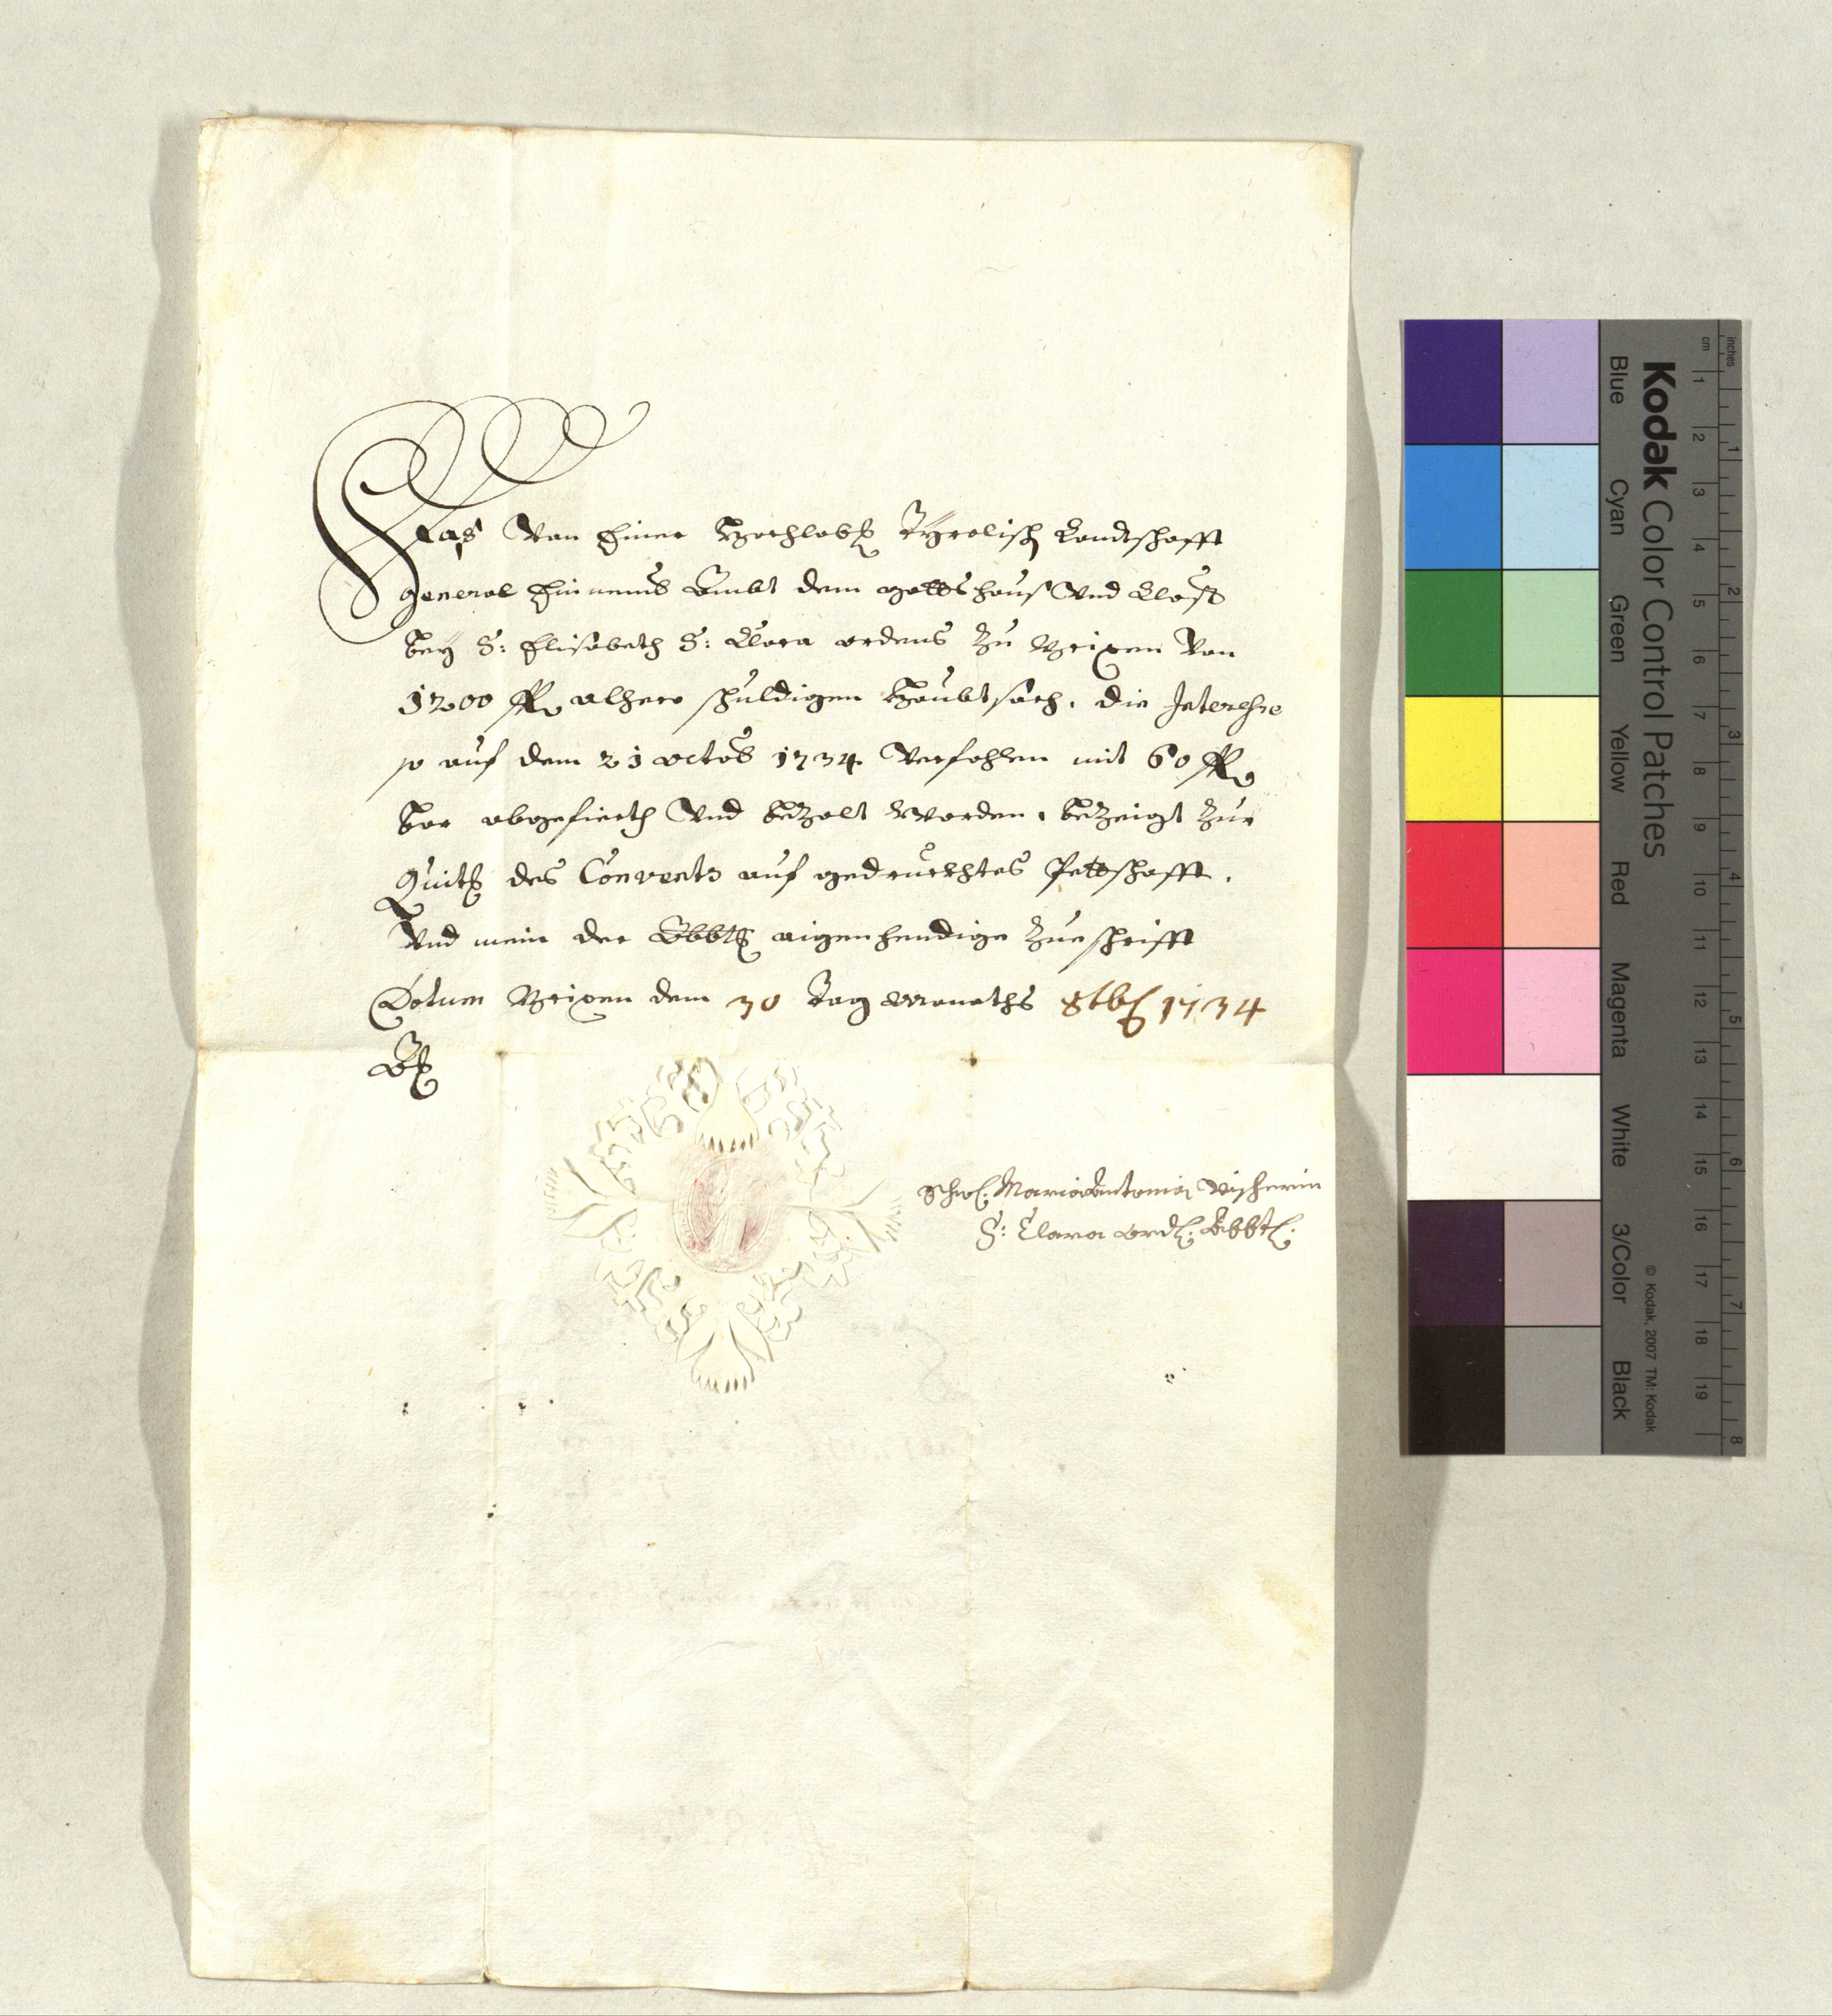 Das Von Einer Hochlobl: Tyrolisch Landtschafft
General Einnemb Ambt dem gottshaus Und Closter
bey S: Elisabeth S: Clara ordens Zu Brixen Von
1200 fl alhero schuldigen Haubtsach, die Interesse
so auf dem 21 octob 1734 Verfahlen mit 60 fl
bar abgefierth Und bezalt Worden, bezeigt Zur
Quitl: des Convents auf gedruckhtes Pettschafft,
Und mein der Abbtl: aigenhendige Zueschrifft
Datum Brixen dem 30 Tag Monaths 8tb: 1734
Schw: Maria Antonia Vischerin
S: Clara ord: Abbt:
Kodak Color Control Patches
Blue Cyan Green Yellow Red Magenta White 3/Color Black
© Kodak, 2007 TM: Kodak
cm 1 2 3 4 5 6 7 8 9 10 11 12 13 14 15 16 17 18 19
inches 1 2 3 4 5 6 7 8